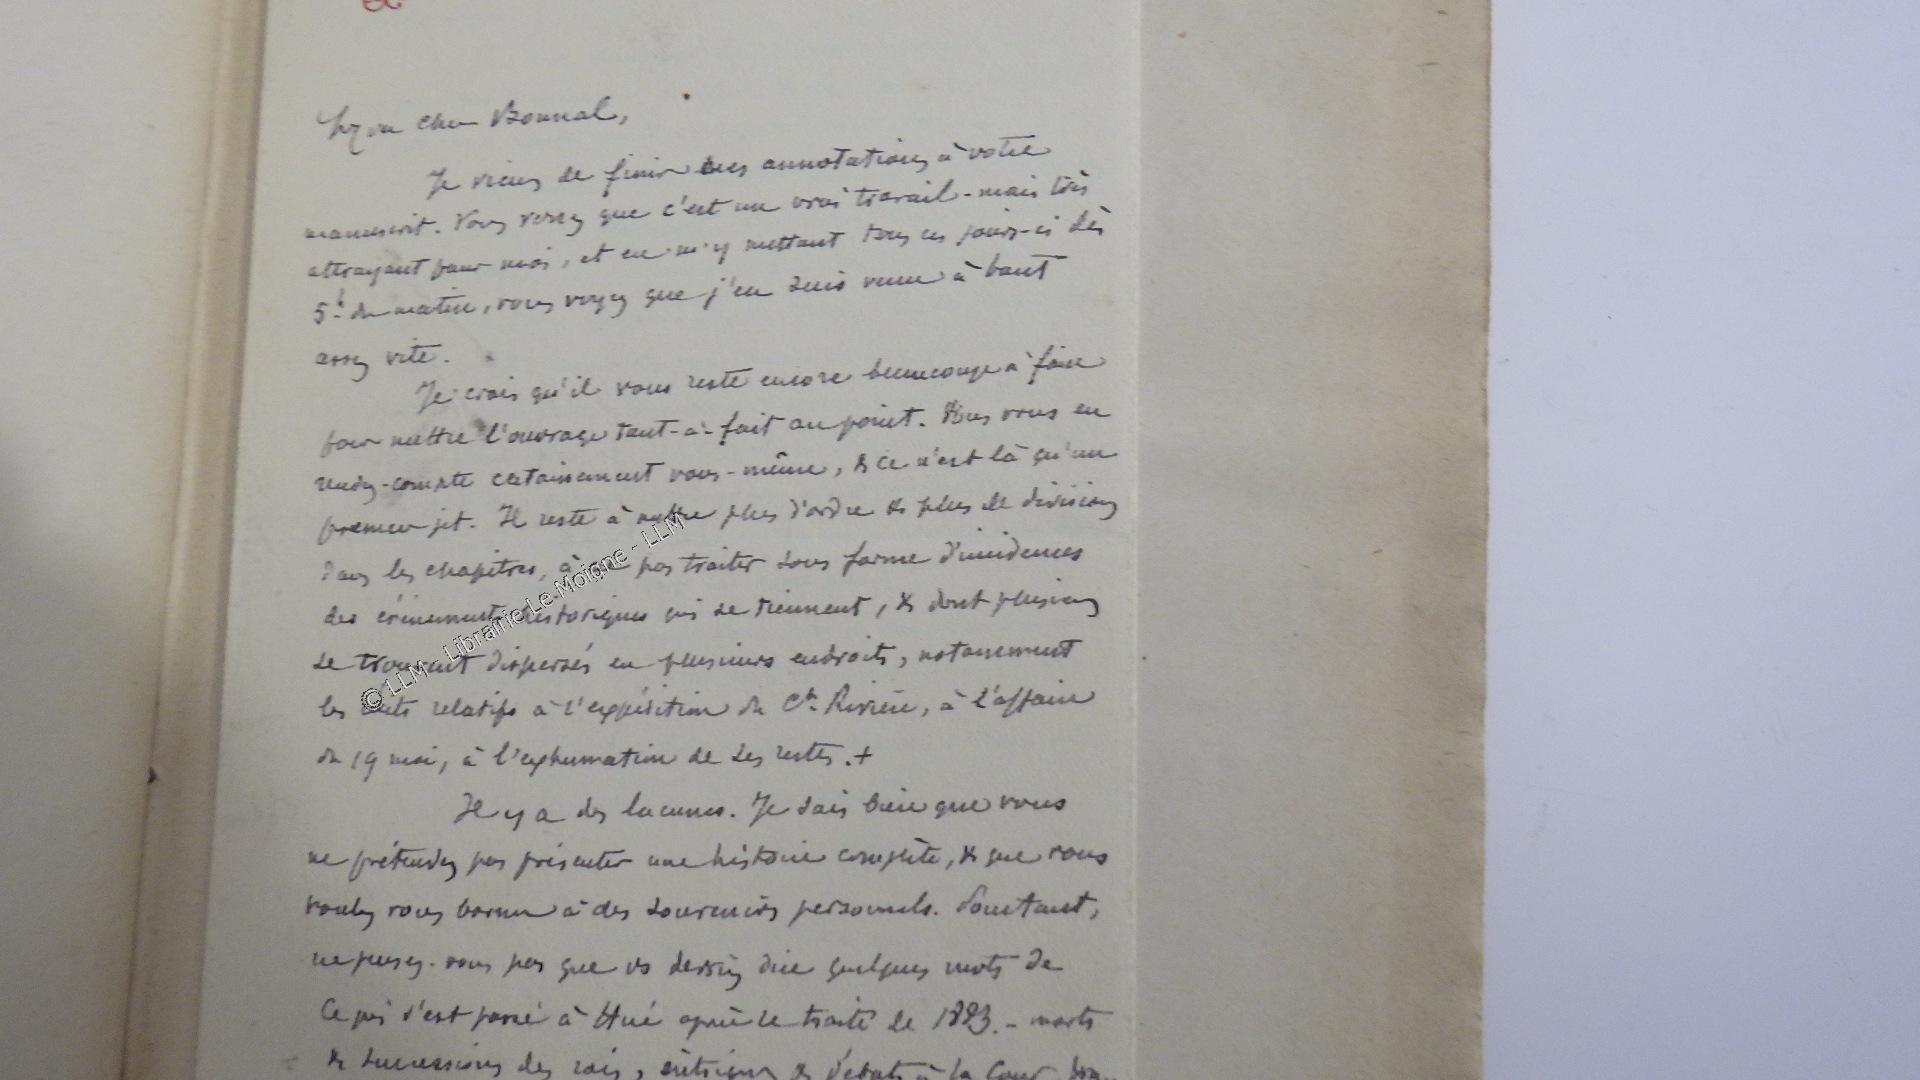 Mon cher Bonnal,
Je viens de finir mes annotations à votre
manuscrit. Vous verrez que c'est un vrai travail - mais très
attrayant pour moi, et en m'y mettant tous ces jours-ci dès
5h du matin, vous voyez que j'en suis venu à bout
assez vite.
Je crois qu'il vous reste encore beaucoup à faire
pour mettre l'ouvrage tout-à-fait au point. Vous vous en
rendez-compte certainement vous-même, & ce n'est là qu'un
premier jet. Il reste à mettre plus d'ordre & plus de divisions
dans les chapitres, à ne pas traiter sous forme d'incidences
des événements historiques qui se tiennent, & dont plusieurs
se trouvent dispersés en plusieurs endroits, notamment
les faits relatifs à l'expédition du Ct Rivière, à l'affaire
du 19 mai, à l'exhumation de ses restes.+
Il y a des lacunes. Je sais bien que vous
ne prétendez pas présenter une histoire complète, & que vous
voulez vous borner à des souvenirs personnels. Pourtant,
ne pensez-vous pas que vs devriez dire quelques mots de
ce qui s'est passé à Hué après le traité de 1883. - morts
& successions des rois, intrigues & débats à la Cour
© LLM - Librairie Le Moigne - LLM